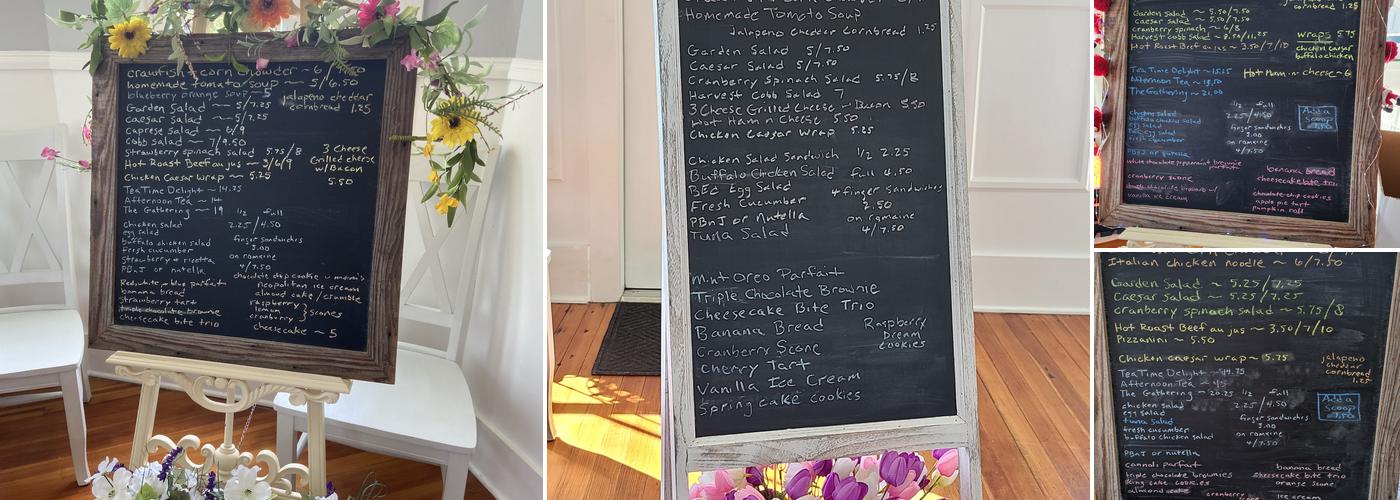 crawfish + corn chowder ~ 6/7.50
homemade tomato soup ~ 5/6.50
blueberry orange soup 5
Garden Salad ~ 5/7.25
jalapeno cheddar
cornbread 1.25
caesar salad ~ 5/7.25
caprese Salad ~ 6/9
cobb salad ~ 7/9.50
Strawberry spinach salad 5.75/8
Hot Roast Beef au jus ~ 3/6/9
Chicken Caesar Wrap ~ 5.25
3 Cheese
Grilled cheese
w/Bacon
5.50
Tea Time Delight ~ 14.75
Afternoon Tea ~ 14
The Gathering ~ 19
1/2 full
chicken salad 2.25/4.50
egg salad
buffalo chicken salad
fresh cucumber
strawberry + ricotta
PBnJ or nutella
finger sandwiches
3.00
on romaine
4/7.50
Red, white + blue parfait
banana bread
strawberry tart
triple chocolate brownie
cheesecake bite trio
chocolate chip cookie
neopolitan ice cream
almond cake/crumble
raspberry
lemon
cranberry
scones
cheesecake ~ 5
Homemade Tomato Soup
Jalapeno Cheddar Cornbread 1.25
Garden Salad 5/7.50
Caesar Salad 5/7.50
Cranberry Spinach Salad 5.75/8
Harvest Cobb Salad 7
3 Cheese Grilled Cheese ~ Bacon 5.50
Hot Ham n Cheese 5.50
Chicken Caesar Wrap 5.25
Chicken Salad Sandwich 1/2 2.25
Buffalo Chicken Salad full 4.50
BEC Egg Salad
Fresh Cucumber
PBnJ or Nutella
Tuna Salad
4 finger Sandwiches
2.50
on romaine
4/7.50
Mint Oreo Parfait
Triple Chocolate Brownie
Cheesecake Bite Trio
Banana Bread
Cranberry Scone
Cherry Tart
Vanilla Ice Cream
Spring Cake Cookies
Raspberry
Dream
Cookies
cornbread 1.25
Garden Salad ~ 5.50/7.50
Caesar salad ~ 5.50/7.50
cranberry spinach ~ 6/8
Harvest cobb salad ~ 8.50/11.25
Hot Roast Beef au jus ~ 3.50/7/10
wraps 5.75
chicken caesar
buffalo chicken
Hot Ham n cheese ~ 6
Tea Time Delight ~ 15.25
Afternoon Tea ~
The Gathering ~ 21.00
1/2 full
chicken salad 2.25/4.50
buffalo chicken salad
egg salad
BEC egg salad
fresh cucumber
finger sandwiches
3.00
on romaine
4/7.50
Add a
scoop
PBnJ or nutella
white chocolate peppermint brownie
parfait
cranberry scone
vanilla ice cream
banana bread
cheesecake bite trio
chocolate chip cookies
apple pie tart
pumpkin roll
Italian chicken noodle ~ 6/7.50
Garden Salad ~ 5.25/7.25
Caesar Salad ~ 5.25/7.25
cranberry spinach salad ~ 5.75/8
Hot Roast Beef au jus ~ 3.50/7/10
Pizzanini ~ 5.50
Chicken caesar wrap ~ 5.75
jalapeno
cheddar
cornbread
1.25
Tea Time Delight ~ 14.75
Afternoon Tea ~ 15
The Gathering ~ 20.25
1/2 full
chicken salad 2.25/4.50
egg salad
tuna salad
fresh cucumber
buffalo chicken salad
finger sandwiches
3.00
on romaine
4/7.50
Add a
scoop
PBnJ or nutella
cannoli parfait
triple chocolate brownies
king cake cookies
almond cake
banana bread
cheesecake bite trio
orange scone
cranberry scone
ice cream